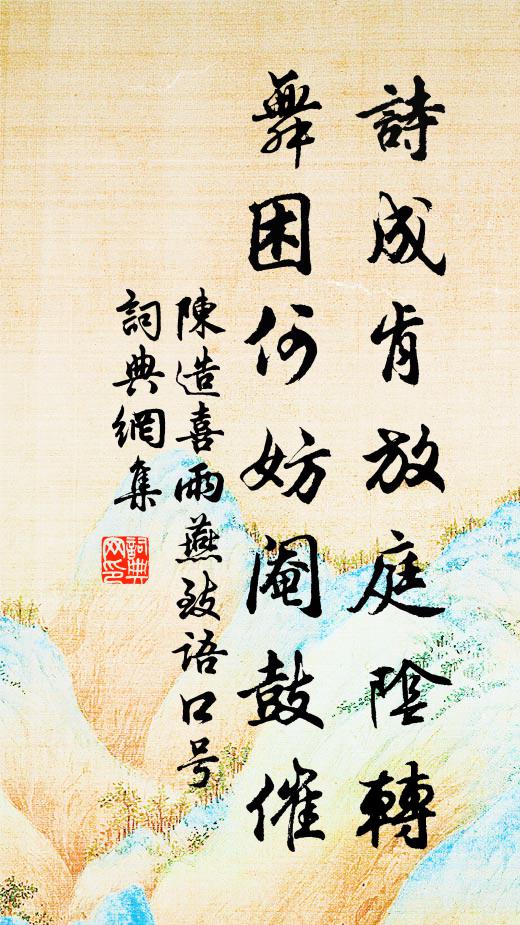 詩成肯放庭陰轉
舞困何妨闍鼓催
陳造喜雨燕致語口号
詞典網集
詞典
网印